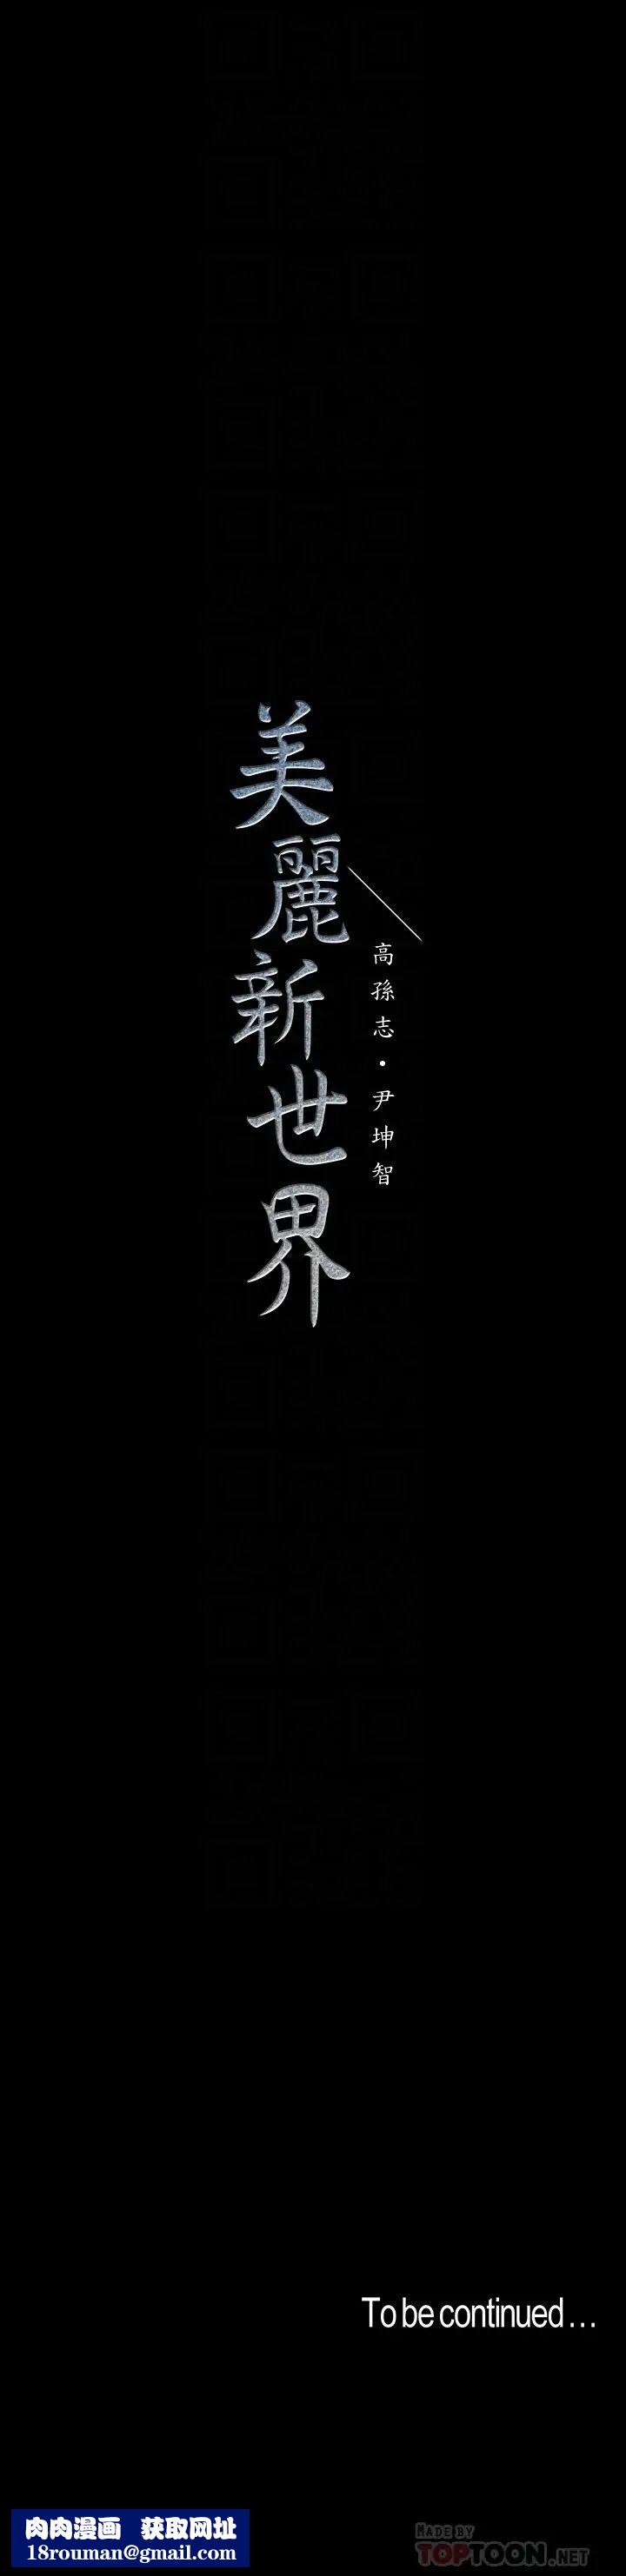 美麗新世界
高孫志・尹坤智
To be continued...
肉肉漫画 获取网址
18rouman@gmail.com
MADE BY
TOPTOON.NET